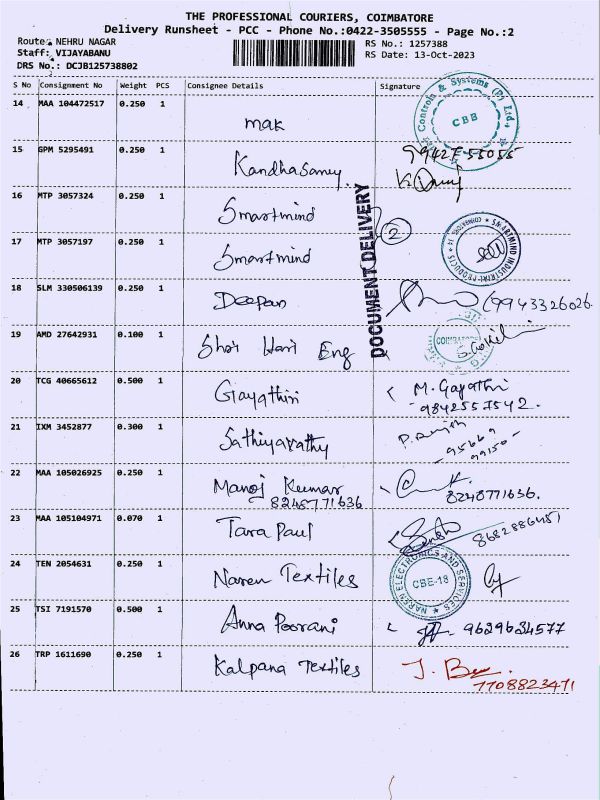 THE PROFESSIONAL COURIERS, COIMBATORE
Delivery Runsheet - PCC - Phone No.:0422-3505555 - Page No.:2
Route: NEHRU NAGAR
RS No.: 1257388
Staff: VIJAYABANU
RS Date: 13-Oct-2023
DRS No.: DCJB125738802
S No Consignment No Weight PCS Consignee Details Signature
14 MAA 104472517 0.250 1 mak
Controls & Systems (P) Ltd.,
CBB
15 GPM 5295491 0.250 1 Kandhasamy 99427-55055
16 MTP 3057324 0.250 1 Smartmind
DOCUMENT DELIVERY
2
17 MTP 3057197 0.250 1 Smartmind
SMARTMIND INDUSTRIAL PRODUCTS
18 SLM 330506139 0.250 1 Deepan (9943326026
19 AMD 27642931 0.100 1 Shri Hari Eng
20 TCG 40665612 0.500 1 Gayathiri M. Gayathri
9842557542.
21 IXM 3452877 0.300 1 Sathiyavathy
95669
99150
22 MAA 105026925 0.250 1 Manoj Kumar
8248771636 8248771636.
23 MAA 105104971 0.070 1 Tara Paul
24 TEN 2054631 0.250 1 Naren Textiles
NAREN ELECTRONICS AND SERVICES
CBE-18
25 TSI 7191570 0.500 1 Anna Poorani 9629634577
26 TRP 1611690 0.250 1 Kalpana Textiles
7708823471